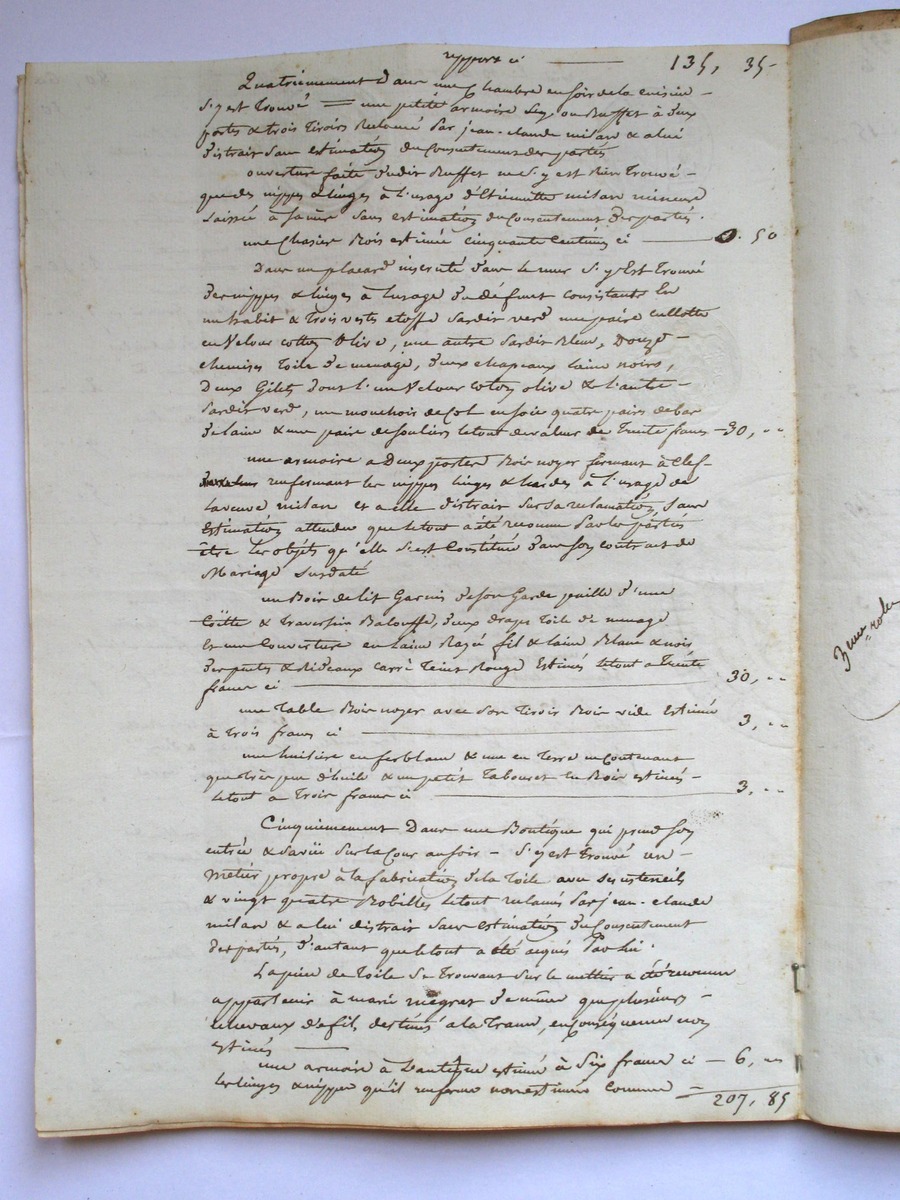 report ci 135, 35-
Quatriemement Dans une Chambre en soir de la cuisine -
S'y est Trouvé = une petite armoire ou Buffet à deux
portes & trois Tiroirs Reclamé Par jean-claude milan & a lui
distrait sans estimation du Consentement des parties
ouverture faite dudit Buffet ne S'y est Rien Trouvé -
que des nippes & linges à l'usage d'Etiennette milan mineure
Laissée à sa mère Sans estimation du Consentement des parties.
une Chasier Bois estimée cinquante Centimes ci 0. 50
Dans un placard incrusté dans le mur S'y Est Trouvé
des nippes & linges à l'usage du défunt consistants En
un habit & Trois vestes etoffe Sardis verd une paire cullotte
en Velour cotton Olive, une autre Sardis Bleu, Douze -
chemises Toile de menage, deux chapeaux Laine noirs,
Deux Gilets dont l'un Velour coton olive & l'autre -
Sardis verd, un mouchoir de Col en soie quatre pairs de bas
de laine & une paire de souliers le tout de valeur de Trente francs - 30, --
une armoire a Deux portes Bois noyer fermant à Clef -
renfermant les nippes linges & hardes à l'usage de
La veuve milan et a elle distrait Sur Sa reclamation, Sans
Estimation attendu que le tout a été reconnu Par les parties
être Les objets qu'elle S'est Constitué dans son contrat de
Mariage Susdaté
un Bois de lit Garnis de son Garde paille d'une
Coitte & Traversin Balouffe, deux draps Toile de menage
Et une Couverture en laine Rayé fil & laine Blanc & noir
des pentes & Rideaux carré Teint Rouge Estimés le tout a Trente
francs ci 30, --
une Table Bois noyer avec Son Tiroir Bois vide Estimée
à Trois francs ci 3, --
une huilière en ferblanc, & une en Terre incontenant
que très peu d'huile & un petit Tabouret En Bois estimés -
le tout a Trois francs ci 3, --
Cinquiemement Dans une Boutique qui prend son
entrée & Sa vüe Sur la Cour au soir - S'y est Trouvé un -
Métier propre à la fabrication de la Toile avec Ses ustensils
& vingt quatre Bobilles le tout reclamés Par jean-claude
milan & a lui distrait Sans Estimation du Consentement
des parties, d'autant que le tout a été acquis Par Lui.
La piece de Toile Se Trouvant Sur le mettier a été reconnue
appartenir à marie megret de même que plusieurs -
echevaux de fil destinés a la Trame, en Conséquence non
estimés
une armoire à L'antique estimée à Six francs ci - 6, --
les linges & nippes qu'il renferme non estimés comme -
207, 85
3eme role